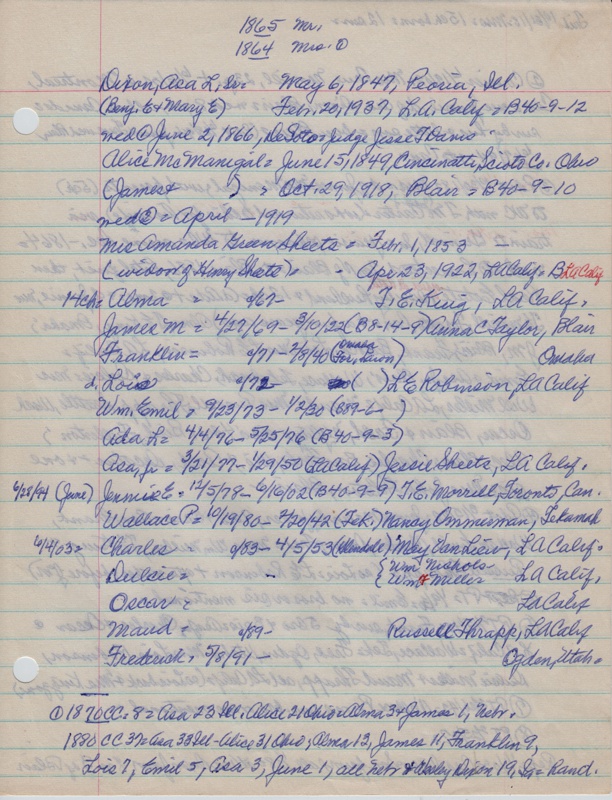 1865 Mr.
1864 Mrs. ①
Dixon, Asa L, Sr. = May 6, 1847, Peoria, Ill.
(Benj. E + Mary E) Feb. 20, 1937, L.A. Calif = B40-9-12
med ① June 2, 1866, DeSoto = Judge Jesse T Davis
Alice McManigal = June 15, 1849, Cincinatti, Scioto Co. Ohio
(James + ) = Oct. 29, 1918, Blair = B40-9-10
med ② = April - 1919
Mrs Amanda Green Sheets = Feb. 1, 1853 =
(widow of Henry Sheets) = - Apr. 23, 1922, LA Calif = B LA Calif
14 ch = Alma = 0/67- T. E. King, LA Calif.
James M = 4/27/69 - 3/10/22 (B8-14-9) Anna C Taylor, Blair
Franklin = 0/71 - 2/8/40 (Omaha For. Lawn) Omaha
d. Lois 0/72 ( ) L E Robinson, LA Calif
Wm. Emil = 9/23/73 - 1/2/20 (B89-6- )
Ada L = 4/4/76 - 5/25/76 (B40-9-3)
Asa, Jr = 3/21/77 - 1/29/50 (LA Calif) Jessie Sheets, LA Calif.
6/28/94 (June) Jennie E = 12/5/78 - 6/16/02 (B40-9-9) T. E. Morrell, Toronto, Can.
Wallace P = 10/19/80 - 2/20/42 (Tek.) Nancy Ommerman, Tekamah
6/4/03 = Charles = 0/83 - 4/5/53 May VanLiew, LA Calif.
Dulsie = - { Wm Nichols
{ Wm Miller LA Calif.
Oscar = LA Calif
Maud = 0/89- Russell Thrapp, LA Calif
Frederick = 5/8/91 - Ogden, Utah =
① 1870 CC = 8 = Asa 23 Ill. Alice 21 Ohio = Alma 3 + James 1, Nebr.
1880 CC 37 = Asa 33 Ill - Alice 31 Ohio, Alma 13, James 11, Franklin 9,
Lois 7, Emil 5, Asa 3, June 1, all Nebr + Dixon 19, = hand.